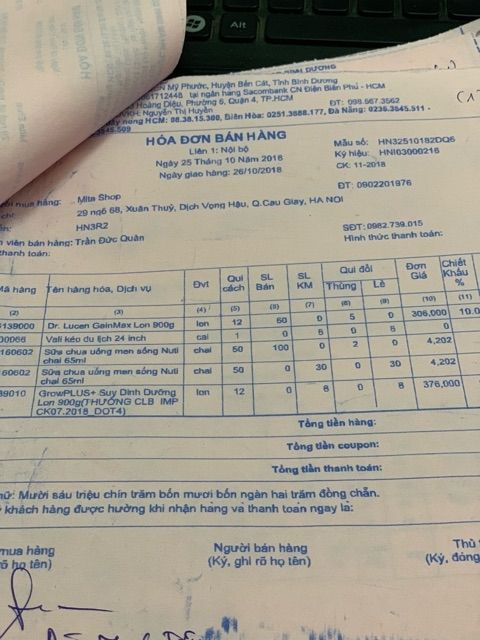 HÓA ĐƠN
BÌNH DƯƠNG
ễn Mỹ Phước, Huyện Bến Cát, Tỉnh Bình Dương
61712448 tại ngân hàng Sacombank CN Điện Biên Phủ - HCM
Hoàng Diệu, Phường 5, Quận 4, TP.HCM ĐT: 098.567.3562
Nguyễn Thị Huyền
nóng HCM: 08.38.15.300, Biên Hòa: 0251.3688.177, Đà Nẵng: 0236.3645.511 -
3645.509
HÓA ĐƠN BÁN HÀNG
Liên 1: Nội bộ
Ngày 25 Tháng 10 Năm 2018
Ngày giao hàng: 26/10/2018
Mẫu số: HN32510182DQ6
Ký hiệu: HNI63000216
CK: 11-2018
ĐT: 0902201976
ời mua hàng: Mita Shop
chỉ: 29 ngõ 68, Xuân Thuỷ, Dịch Vọng Hậu, Q.Cau Giay, HA NOI
HN3R2
SĐT: 0982.739.015
viên bán hàng: Trần Đức Quân
Hình thức thanh toán:
thanh toán:
Mã hàng Tên hàng hóa, Dịch vụ Đvt Qui cách SL Bán SL KM Qui đổi Thùng Lẻ Đơn Giá Chiết Khấu %
(2) (3) (4) (5) (6) (7) (8) (9) (10) (11)
139000 Dr. Lucen GainMax Lon 900g lon 12 60 0 5 0 306,000 10.0
00066 Vali kéo du lịch 24 inch cai 1 0 6 6 0
160602 Sữa chua uống men sống Nuti chai 65ml chai 50 100 0 2 0 4,202
160602 Sữa chua uống men sống Nuti chai 65ml chai 50 0 30 0 30 4,202
39010 GrowPLUS+ Suy Dinh Dưỡng Lon 900g(THƯỞNG CLB IMP CK07.2018_DOT4) lon 12 0 8 0 8 376,000
Tổng tiền hàng:
Tổng tiền coupon:
Tổng tiền thanh toán:
hữ: Mười sáu triệu chín trăm bốn mươi bốn ngàn hai trăm đồng chẵn.
khách hàng được hưởng khi nhận hàng và thanh toán ngay là:
mua hàng Người bán hàng Thủ
rõ họ tên) (Ký, ghi rõ họ tên) (Ký, đóng
Alt